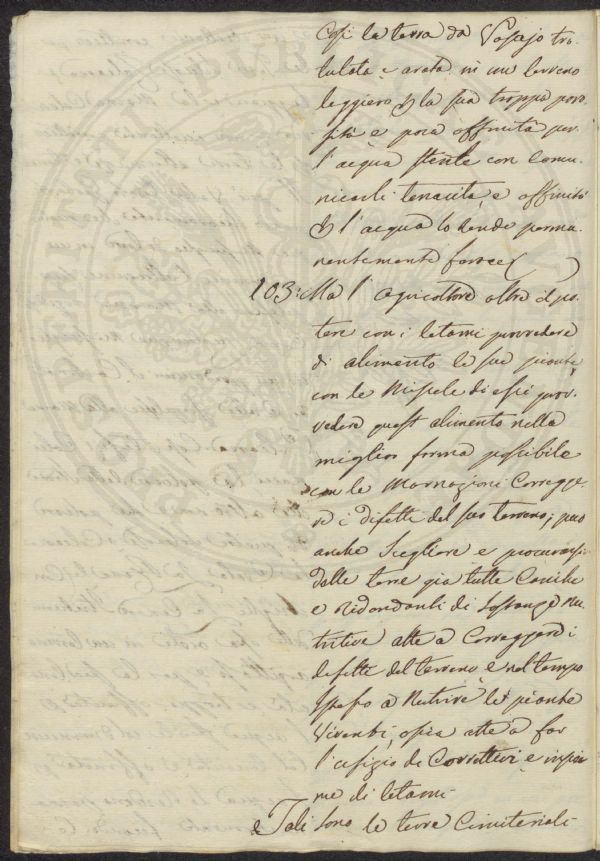 Così la terra da Vasajo tri-
tulata e arata in un terreno
leggiero, la sua troppa poro-
sità e poca affinità per
l'acqua, con comu-
nicarli tenacità, e affinità
l'acqua lo rende perma-
nentemente
103: Ma l'agricoltore oltre il po-
tere con i letami provvedere
di alimento le sue piante,
con le Miscele di essi prov-
vedere quest alimento nella
miglior forma possibile
con le Marnazioni Corregge-
re i difetti del suo terreno; può
anche Scegliere e procurarsi
delle terre già tutte Concihe
e ridondanti di Sostanze nu-
tritive atte a Correggere i
difetti del terreno e nel tempo
stesso a Nutrire le piante
Viventi, ossia atte a far
l'ufizio di Correttivi e insie-
me di letami
e Tali sono le terre Cimiteriali